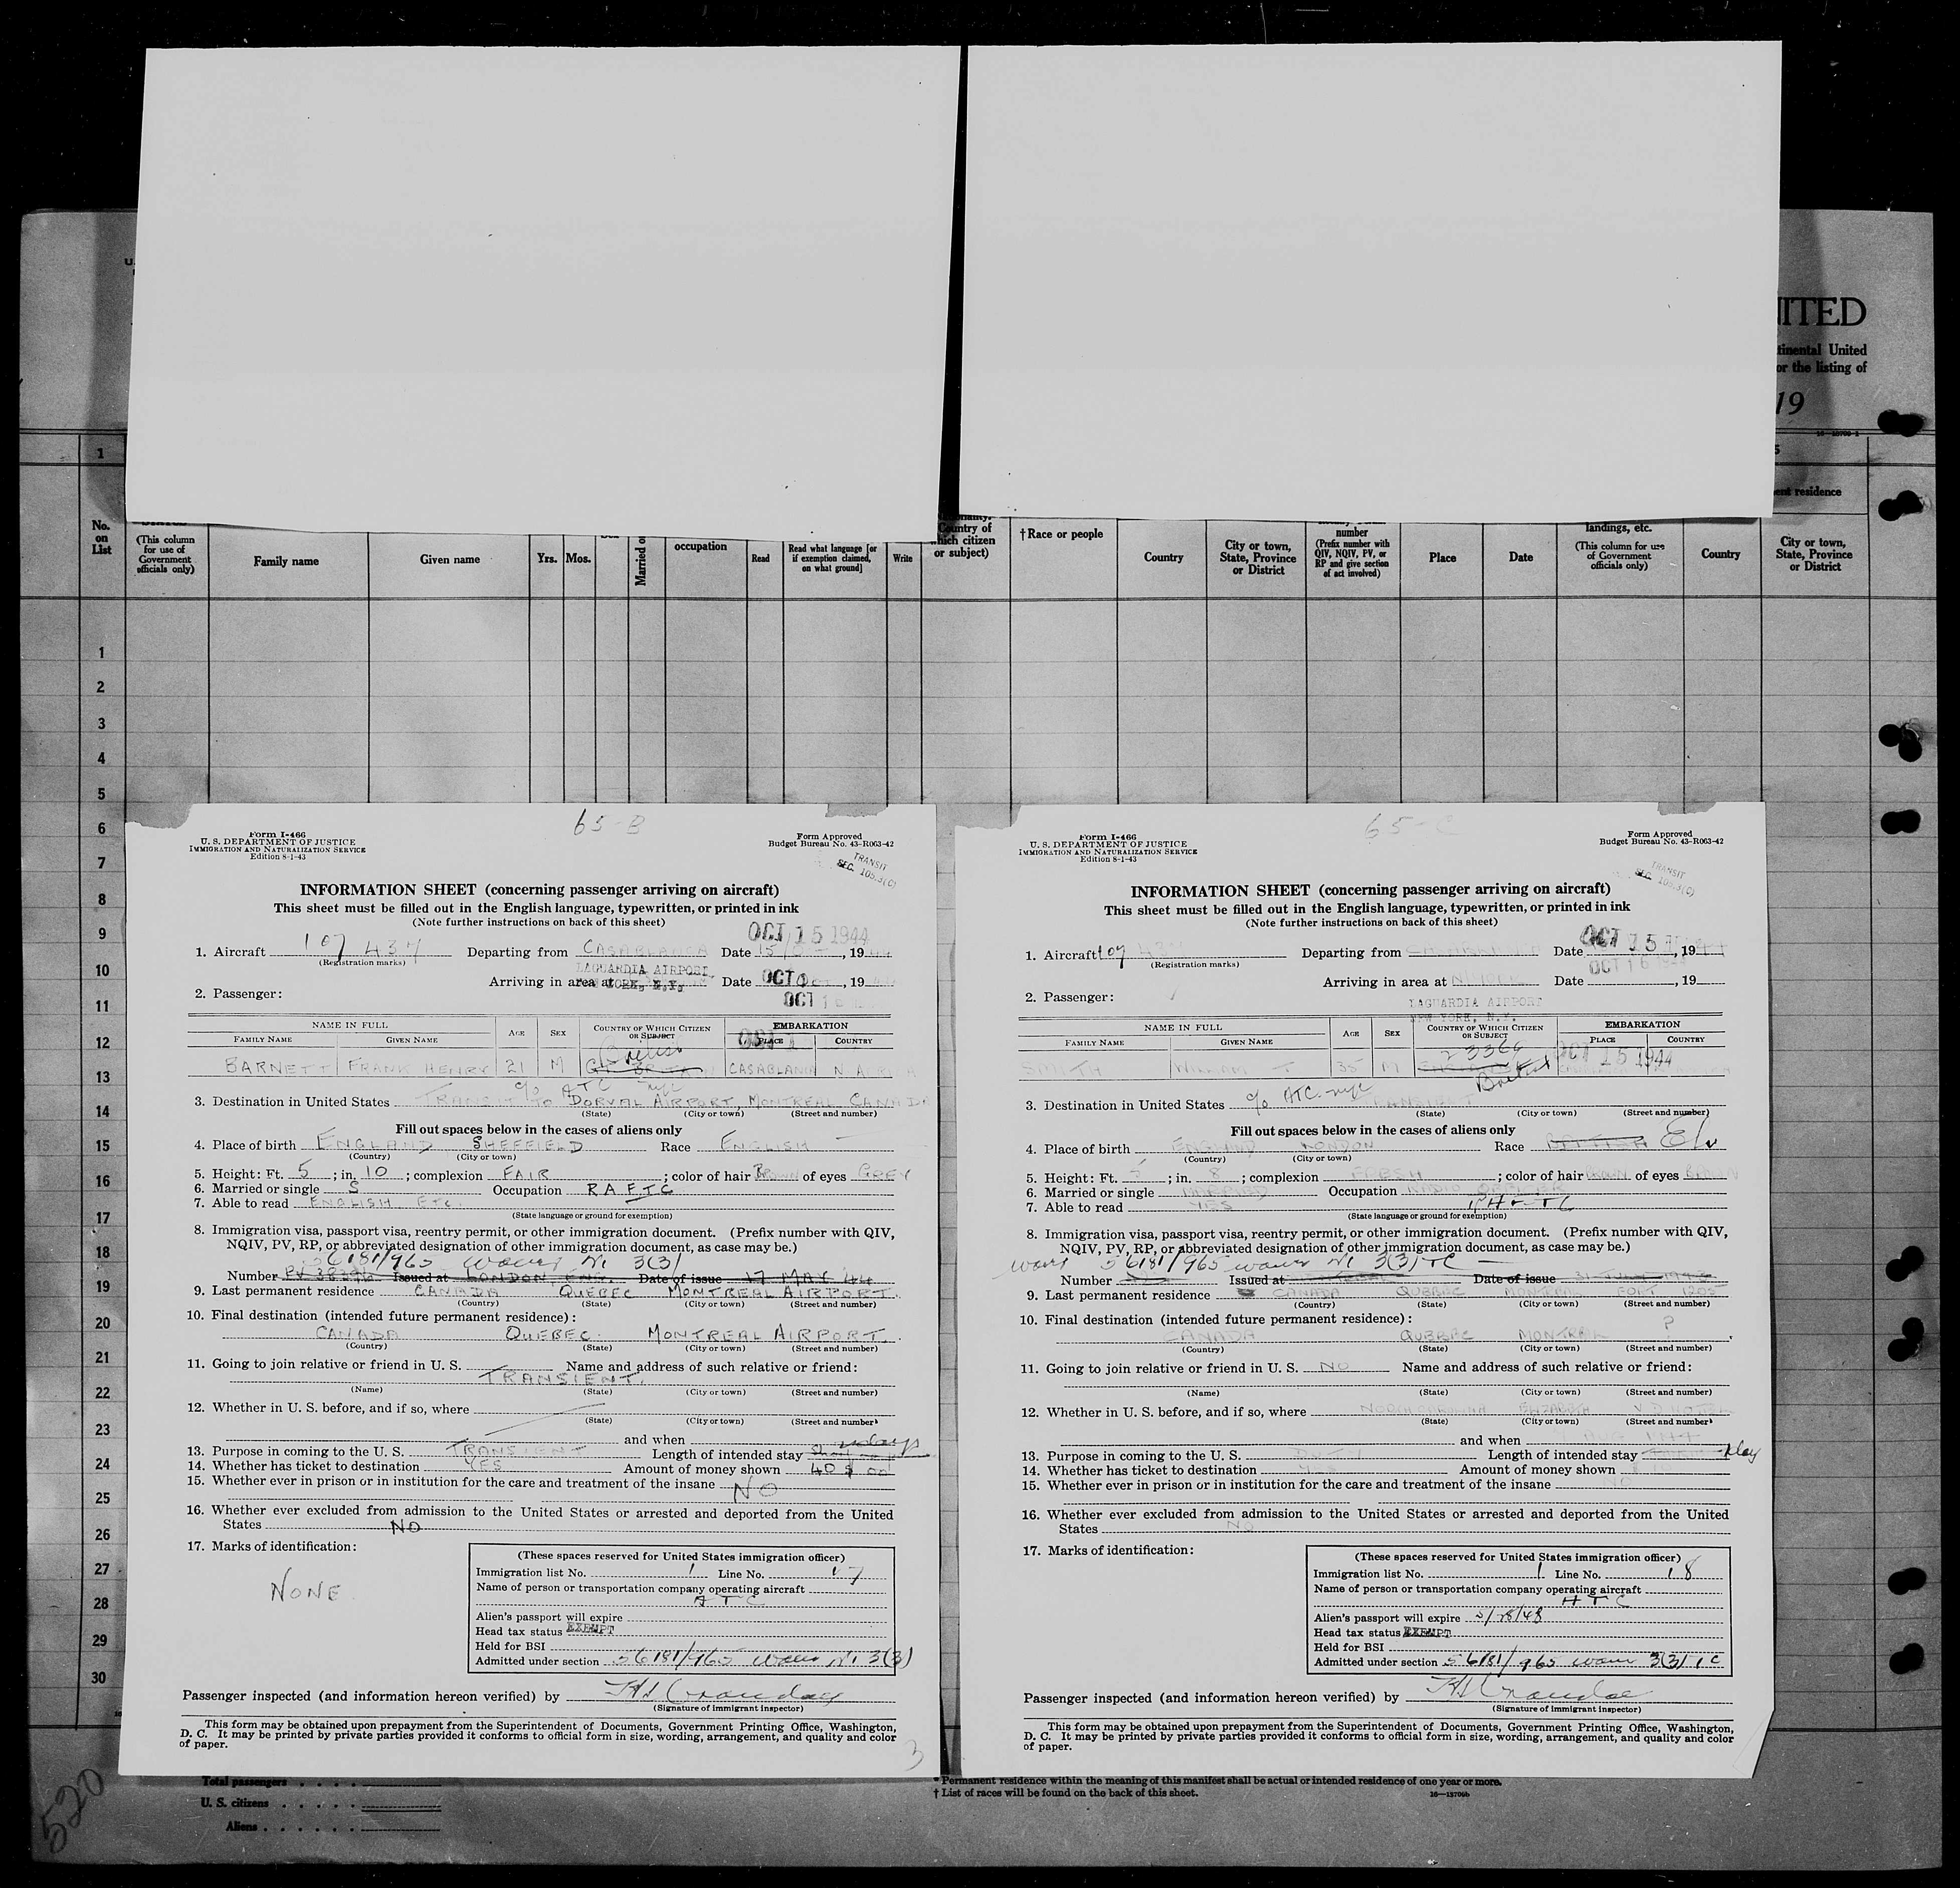 NITED
tinental United
or the listing of
19
1
No.
on
List
(This column
for use of
Government
officials only)
Family name
Given name
Yrs.
Mos.
Married o
occupation
Read
Read what language [or
if exemption claimed,
on what ground]
Write
Country of
hich citizen
or subject)
† Race or people
Country
City or town,
State, Province
or District
number
(Prefix number with
QIV, NQIV, PV, or
RP and give section
of act involved)
Place
Date
landings, etc.
(This column for use
of Government
officials only)
ent residence
Country
City or town,
State, Province
or District
1
2
3
4
5
6
7
8
9
10
11
12
13
14
15
16
17
18
19
20
21
22
23
24
25
26
27
28
29
30
65-B
Form I-466
U. S. DEPARTMENT OF JUSTICE
IMMIGRATION AND NATURALIZATION SERVICE
Edition 8-1-43
Form Approved
Budget Bureau No. 43-R063-42
TRANSIT
SEC. 105.3(C)
INFORMATION SHEET (concerning passenger arriving on aircraft)
This sheet must be filled out in the English language, typewritten, or printed in ink
(Note further instructions on back of this sheet)
OCT 15 1944
1. Aircraft 107 437 Departing from CASABLANCA Date 15/ , 19
(Registration marks)
LAGUARDIA AIRPORT,
Arriving in area at NEW YORK, N.Y. Date OCT , 19
OCT 16
2. Passenger:
NAME IN FULL AGE SEX COUNTRY OF WHICH CITIZEN OR SUBJECT EMBARKATION
FAMILY NAME GIVEN NAME PLACE COUNTRY
British
BARNETT FRANK HENRY 21 M GT. BRITAIN CASABLANCA N. AFRICA
c/o ATC nyc
3. Destination in United States TRANSIT TO DORVAL AIRPORT, MONTREAL CANADA
(State) (City or town) (Street and number)
Fill out spaces below in the cases of aliens only
4. Place of birth ENGLAND SHEFFIELD Race ENGLISH
(Country) (City or town)
5. Height: Ft. 5 ; in. 10 ; complexion FAIR ; color of hair BROWN of eyes GREY
6. Married or single S Occupation RAFTC
7. Able to read ENGLISH ETC.
(State language or ground for exemption)
8. Immigration visa, passport visa, reentry permit, or other immigration document. (Prefix number with QIV,
NQIV, PV, RP, or abbreviated designation of other immigration document, as case may be.)
56181/965 waiver Ni 3(3)
Number PV 38396 Issued at LONDON, ENG. Date of issue 17 MAY 44
9. Last permanent residence CANADA QUEBEC MONTREAL AIRPORT.
(Country) (State) (City or town) (Street and number)
10. Final destination (intended future permanent residence):
CANADA QUEBEC. MONTREAL AIRPORT.
(Country) (State) (City or town) (Street and number)
11. Going to join relative or friend in U. S. Name and address of such relative or friend:
TRANSIENT.
(Name) (State) (City or town) (Street and number)
12. Whether in U. S. before, and if so, where
(State) (City or town) (Street and number)
and when
13. Purpose in coming to the U. S. TRANSIENT Length of intended stay days
14. Whether has ticket to destination YES Amount of money shown 40 $ 00
15. Whether ever in prison or in institution for the care and treatment of the insane NO
16. Whether ever excluded from admission to the United States or arrested and deported from the United
States NO
17. Marks of identification:
NONE
(These spaces reserved for United States immigration officer)
Immigration list No. 1 Line No. 17
Name of person or transportation company operating aircraft
ATC
Alien's passport will expire
Head tax status EXEMPT
Held for BSI
Admitted under section 56181/965 waiver Ni 3(3)
Passenger inspected (and information hereon verified) by
(Signature of immigrant inspector)
This form may be obtained upon prepayment from the Superintendent of Documents, Government Printing Office, Washington,
D. C. It may be printed by private parties provided it conforms to official form in size, wording, arrangement, and quality and color
of paper.
3
65-C
Form I-466
U. S. DEPARTMENT OF JUSTICE
IMMIGRATION AND NATURALIZATION SERVICE
Edition 8-1-43
Form Approved
Budget Bureau No. 43-R063-42
TRANSIT
SEC. 105.3(C)
INFORMATION SHEET (concerning passenger arriving on aircraft)
This sheet must be filled out in the English language, typewritten, or printed in ink
(Note further instructions on back of this sheet)
OCT 15 1944
1. Aircraft 107 437 Departing from Date , 19
(Registration marks)
OCT 16
Arriving in area at Date , 19
2. Passenger:
LAGUARDIA AIRPORT
NEW YORK, N.Y.
NAME IN FULL AGE SEX COUNTRY OF WHICH CITIZEN OR SUBJECT EMBARKATION
FAMILY NAME GIVEN NAME PLACE COUNTRY
23364
OCT 15 1944
SMITH WILLIAM T 35 M British
3. Destination in United States c/o ATC nyc TRANSIENT
(State) (City or town) (Street and number)
Fill out spaces below in the cases of aliens only
4. Place of birth ENGLAND LONDON Race BRITISH
(Country) (City or town)
5. Height: Ft. 5 ; in. 8 ; complexion FRESH ; color of hair BROWN of eyes BROWN
6. Married or single MARRIED Occupation RADIO OFFICER
7. Able to read YES
(State language or ground for exemption)
8. Immigration visa, passport visa, reentry permit, or other immigration document. (Prefix number with QIV,
NQIV, PV, RP, or abbreviated designation of other immigration document, as case may be.)
56181/965 waiver Ni 3(3) TC
Number Issued at Date of issue
9. Last permanent residence CANADA QUEBEC MONTREAL
(Country) (State) (City or town) (Street and number)
10. Final destination (intended future permanent residence):
CANADA QUEBEC MONTREAL ?
(Country) (State) (City or town) (Street and number)
11. Going to join relative or friend in U. S. NO Name and address of such relative or friend:
(Name) (State) (City or town) (Street and number)
12. Whether in U. S. before, and if so, where NORTH CAROLINA ELIZABETH
(State) (City or town) (Street and number)
and when
13. Purpose in coming to the U. S. DUTY Length of intended stay 1 day
14. Whether has ticket to destination YES Amount of money shown
15. Whether ever in prison or in institution for the care and treatment of the insane
16. Whether ever excluded from admission to the United States or arrested and deported from the United
States NO
17. Marks of identification:
(These spaces reserved for United States immigration officer)
Immigration list No. 1 Line No. 18
Name of person or transportation company operating aircraft
ATC
Alien's passport will expire 5/28/48
Head tax status EXEMPT
Held for BSI
Admitted under section 56181/965 waiver 3(3) TC
Passenger inspected (and information hereon verified) by
(Signature of immigrant inspector)
This form may be obtained upon prepayment from the Superintendent of Documents, Government Printing Office, Washington,
D. C. It may be printed by private parties provided it conforms to official form in size, wording, arrangement, and quality and color
of paper.
Total passengers
U. S. citizens
Aliens
520
* Permanent residence within the meaning of this manifest shall be actual or intended residence of one year or more.
† List of races will be found on the back of this sheet.
16—13706b